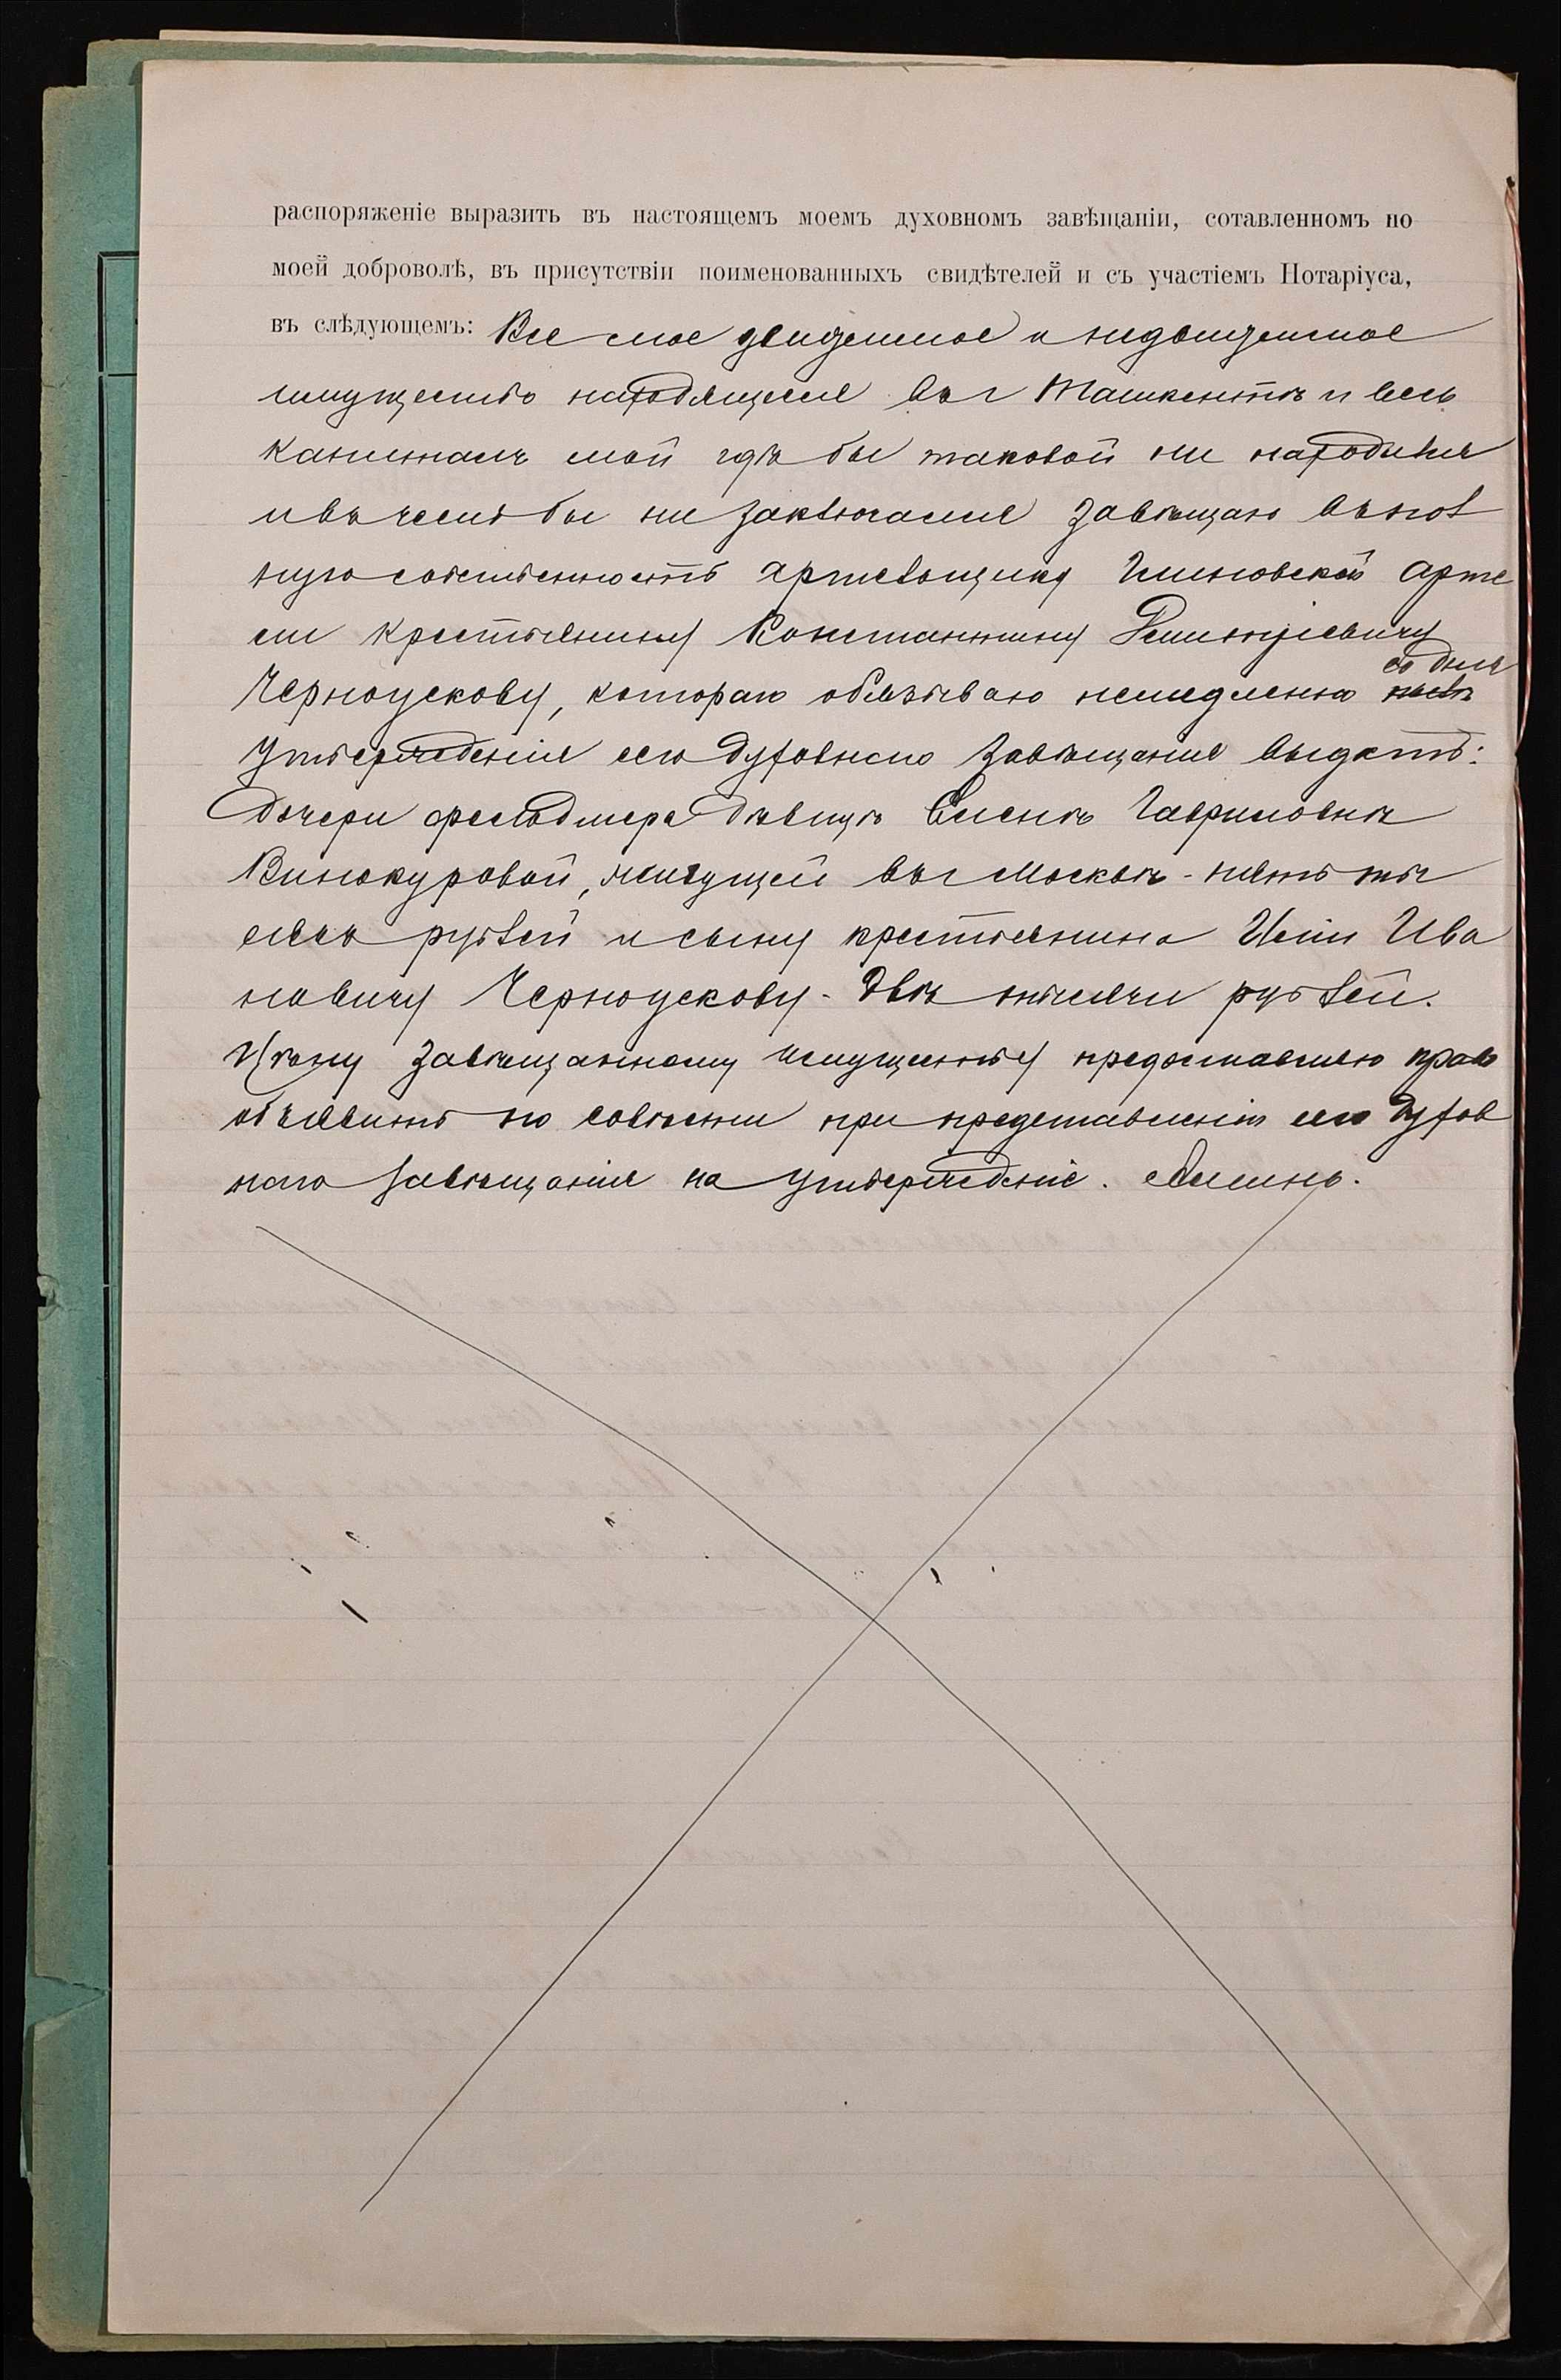 распоряженіе выразить въ настоящемъ моемъ духовномъ завѣщаніи, сотавленномъ по
моей доброволѣ, въ присутствіи поименованныхъ свидѣтелей и съ участіемъ Нотаріуса,
въ слѣдующемъ: Все мое движимое и недвижимое
имущество находящееся въ г Ташкентѣ и весь
капиталъ мой гдѣ бы таковой ни находился
и въ чемъ бы ни заключался завѣщаю въ пол
ную собственность артельщику арте
ли крестьянину Константину
Черноускову, котораго обязываю немедленно
со дня
утвержденія сего духовного завѣщанія выдать:
дочери фельдшера дѣвицѣ Еленѣ Гавриловнѣ
Винокуровой, живущей въ г Москвѣ - пять ты
сячъ рублей и сыну крестьянина Ива
новичу Черноускову - двѣ тысячи рублей.
Цѣну завѣщанному имуществу предоставляю право
объявить по совѣсти при представленіи сего духов
наго завѣщанія на утвержденіе. Аминь.